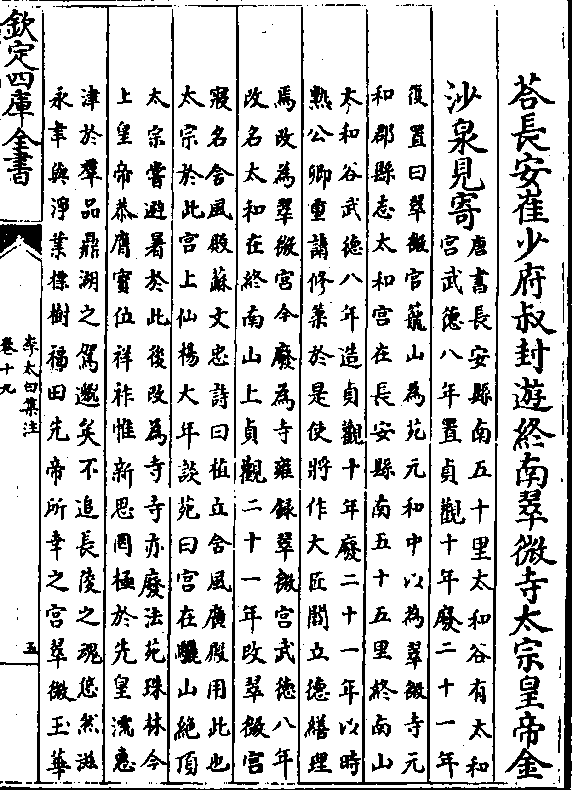 荅長安崔少府叔封遊終南翠微寺太宗皇帝金
沙泉見寄
唐書長安縣南五十里太和谷有太和
宮武德八年置貞觀十年廢二十一年
復置曰翠微宮籠山為苑元和中以為翠微寺元
和郡縣志太和宮在長安縣南五十五里終南山
太和谷武德八年造貞觀十年廢二十一年以時
熱公卿重請修築於是使將作大匠閻立德繕理
焉改為翠微宮今廢為寺雍録翠微宮武德八年
改名太和在終南山上貞觀二十一年改翠微宮
寢名含風殿蘇文忠詩曰植立含風廣殿用此也
太宗於此宮上仙楊大年談苑曰宮在驪山絶頂
太宗嘗避暑於此後改為寺寺亦廢法苑珠林今
上皇帝恭膺寳位祥祚惟新思罔極於先皇濡惠
津於羣品鼎湖之駕邈矣不追長陵之魂悠然滋
永聿興淨業標樹福田先帝所幸之宮翠微玉華
欽定四庫全書
李太白集注
卷十九
五